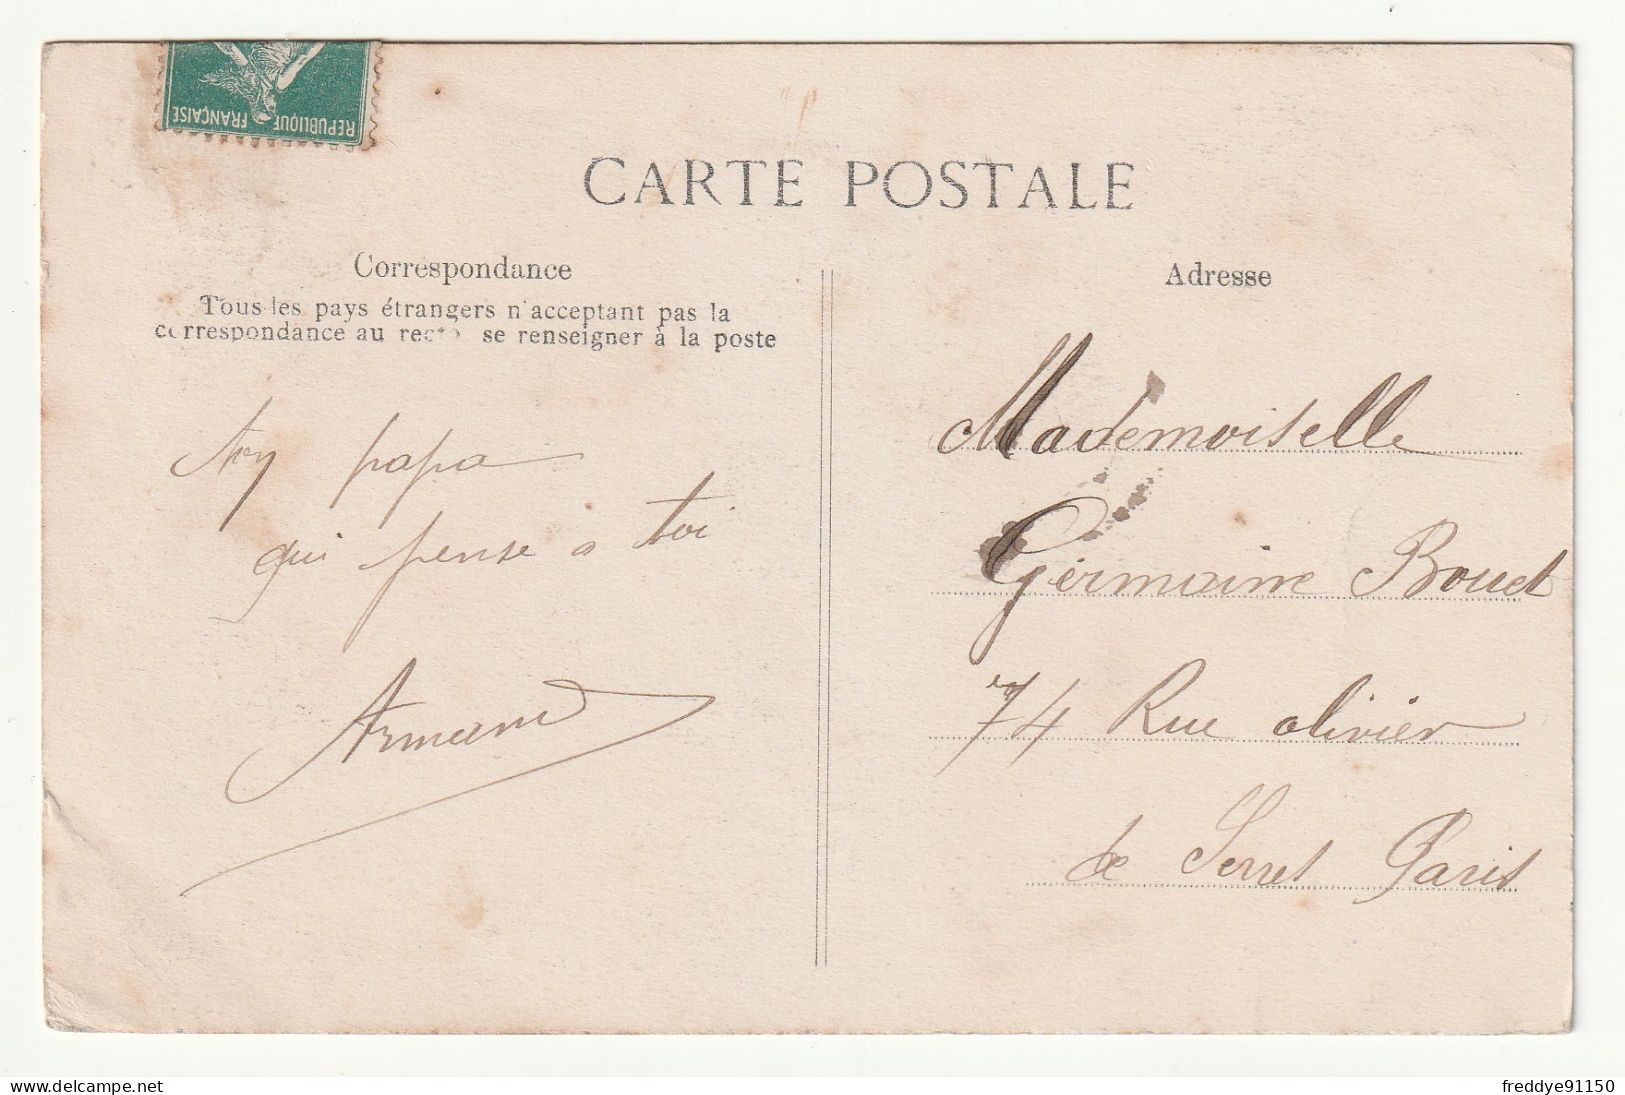 REPUBLIQUE FRANÇAISE
CARTE POSTALE
Correspondance
Tous les pays étrangers n'acceptant pas la
correspondance au recto se renseigner à la poste
papa
qui pense a toi
Armand
Adresse
Mademoiselle
Germaine Bouet
74 Rue olivier
de Serres Paris
freddye91150